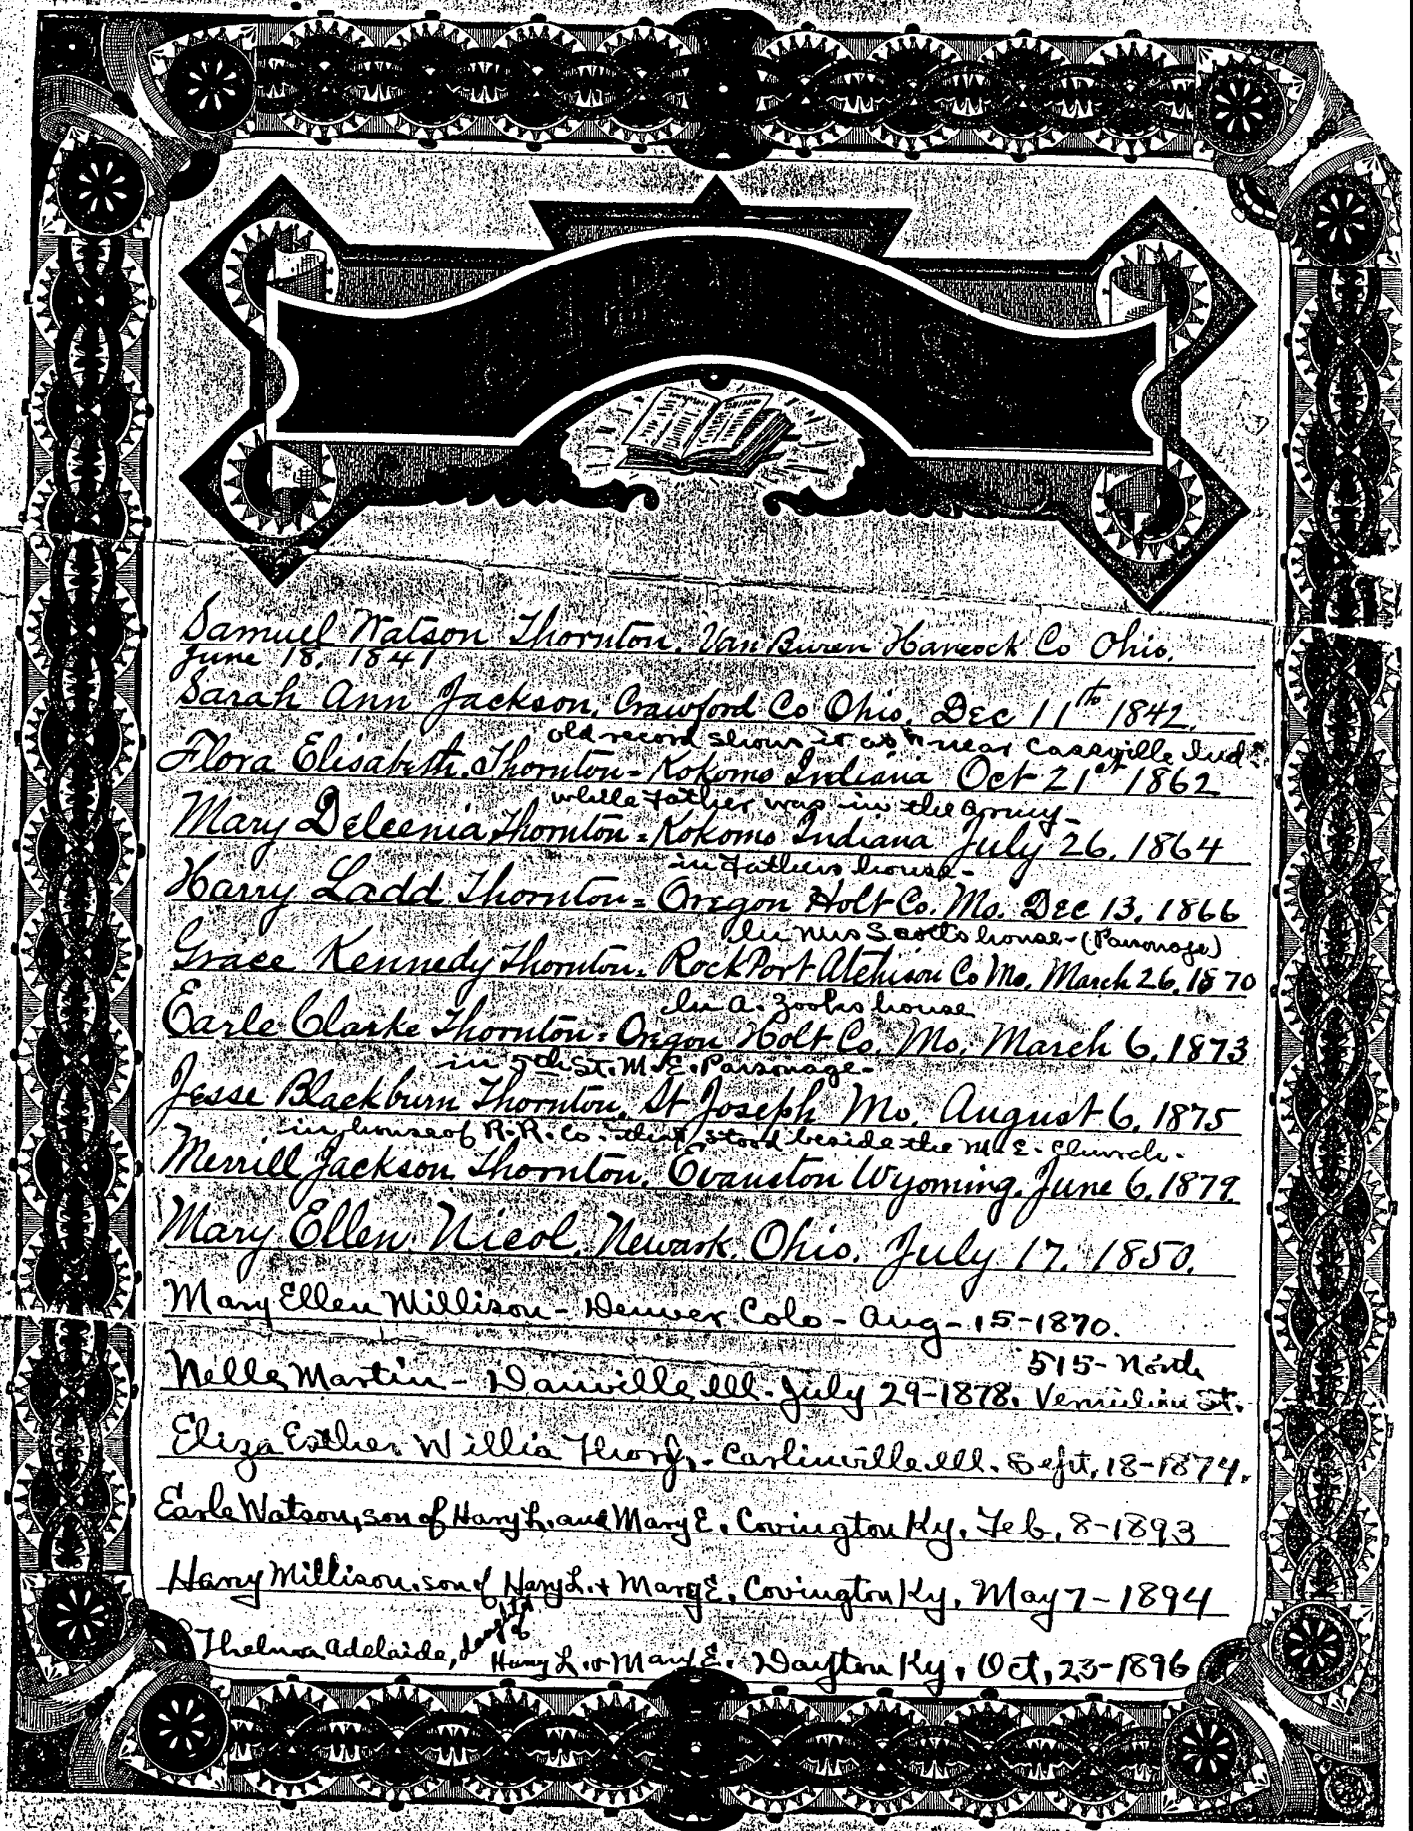 Samuel Watson Thornton, Van Buren Hancock Co Ohio.
June 18, 1841
Sarah Ann Jackson, Crawford Co Ohio, Dec 11th 1842.
old record shows it as near Cassville Ind
Flora Elisabeth Thornton - Kokomo Indiana Oct 21st 1862
while Father was in the army -
Mary Deleenia Thornton = Kokomo Indiana July 26, 1864
in Fathers house -
Harry Ladd Thornton = Oregon Holt Co. Mo. Dec 13, 1866
In Mrs Scotts house - (Parsonage)
Grace Kennedy Thornton = Rock Port Atchison Co Mo, March 26, 1870
In A. Zooks house
Earle Clarke Thornton = Oregon Holt Co. Mo. March 6, 1873
in 5th St. M.E. Parsonage -
Jesse Blackburn Thornton, St Joseph Mo, August 6, 1875
in house of R.R. Co. that stood beside the M.E. Church -
Merrill Jackson Thornton, Evanston Wyoming, June 6, 1879
Mary Ellen Nicol, Newark, Ohio, July 17, 1850.
Mary Ellen Millison - Denver Colo - Aug - 15 - 1870.
515 - North
Nelle Martin - Danville Ill. July 29 - 1878. Vermilion St.
Eliza Esther Willia - Carlinville Ill. Sept. 18 - 1874.
Earle Watson, son of Harry L. and Mary E. Covington Ky. Feb. 8 - 1893
Harry Millison, son of Harry L. + Mary E. Covington Ky, May 7 - 1894
Thelma Adelaide, daughter of
Harry L. + Mary E. Dayton Ky, Oct, 23 - 1896